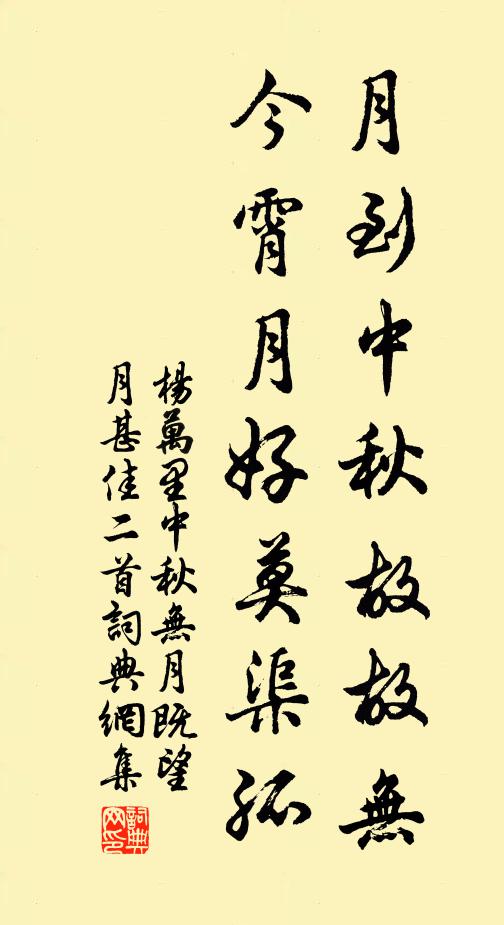 月到中秋故故無
今霄月好莫渠孤
楊萬里中秋無月既望
月甚佳二首詞典網集
詞典網印